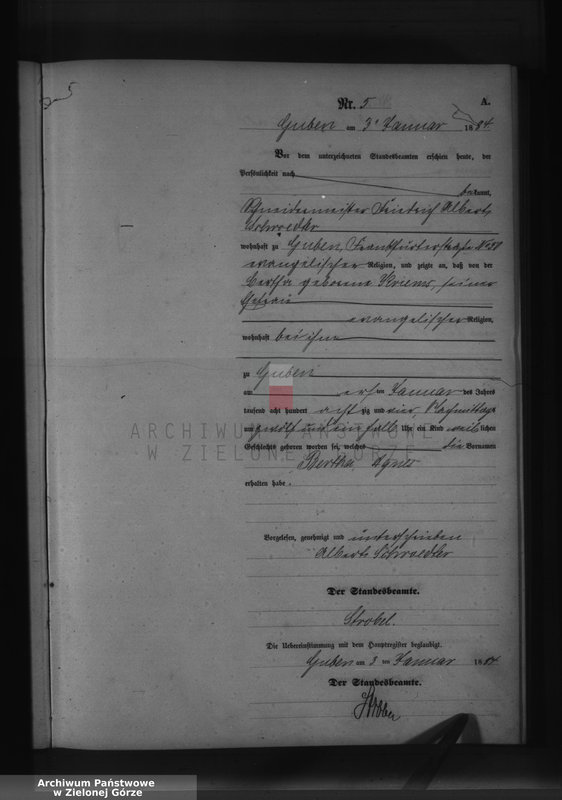 5
Nr. 5
A.
Guben am 3ᵗ Januar 1884.
Vor dem unterzeichneten Standesbeamten erschien heute, der
Persönlichkeit nach
bekannt,
Schneidermeister Friedrich Albert
Schroedter
wohnhaft zu Guben, Frankfurterstraße No
evangelischer Religion, und zeigte an, daß von der
Bertha geborene Kriems, seiner
Ehefrau
evangelischer Religion,
wohnhaft bei ihm
zu Guben
am ersten Januar des Jahres
tausend acht hundert achtzig und vier, Nachmittags
um zwölf und ein halb Uhr ein Kind weiblichen
Geschlechts geboren worden sei, welches die Vornamen
Bertha Agnes
erhalten habe.
Vorgelesen, genehmigt und unterschrieben
Albert Schroedter
Der Standesbeamte.
Strobel.
Die Uebereinstimmung mit dem Hauptregister beglaubigt.
Guben am 3 ten Januar 1884.
Der Standesbeamte.
Strobel
ARCHIWUM PAŃSTWOWE
W ZIELONEJ GÓRZE
Archiwum Państwowe
w Zielonej Górze